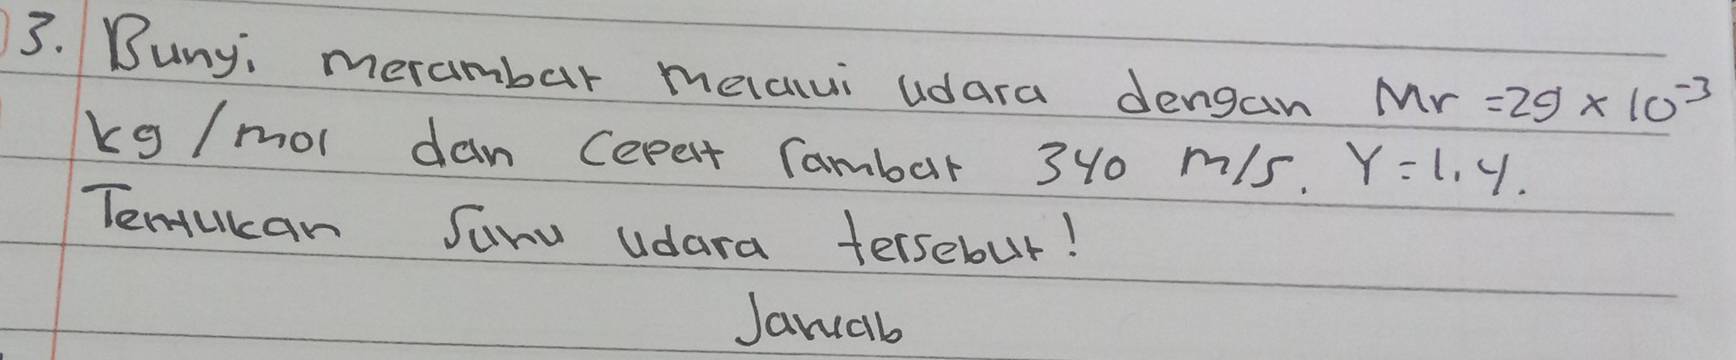 3. Bunyi merambat melalui udara dengan Mr = 29 × 10⁻³
kg/mol dan cepat rambat 340 m/s. γ = 1,4.
Tentukan suhu udara tersebut!
Jawab